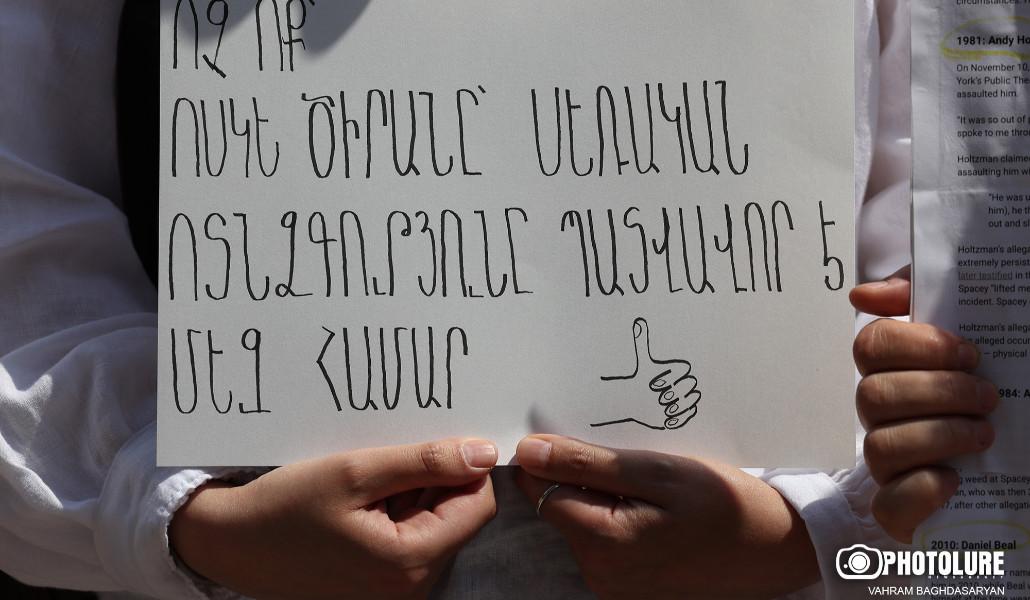 ՈՉ ՈՔ՝
ՈՍԿԵ ԾԻՐԱՆԸ՝ ՍԵՌԱԿԱՆ
ՈՏՆՁԳՈՒԹՅՈՒՆԸ ՊԱՏՎԱՎՈՐ Է
ՄԵԶ ՀԱՄԱՐ
circumstances.
1981: Andy Ho
On November 10,
York's Public The
assaulted him.
"It was so out of
spoke to me
Holtzman claimed
assaulting him
"He was
him), he
out and
Holtzman's
extremely persist
later testified in
Spacey "lifted me
incident. Spacey
Holtzman's
alleged
– physical
984:
weed at Spacey
who was then
after other
2010: Daniel Beal
PHOTOLURE
VAHRAM BAGHDASARYAN